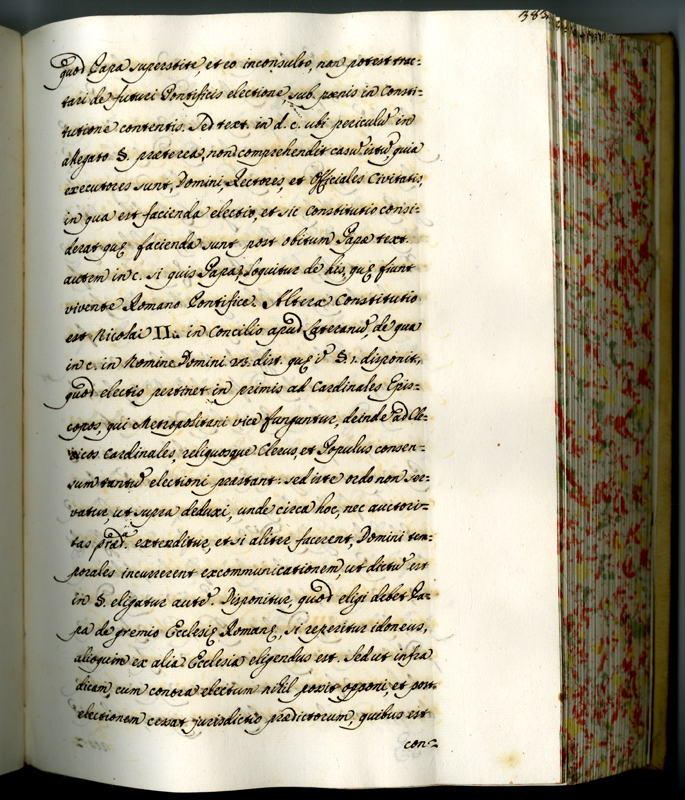 383
quod Papa superstite, et eo inconsulto, non potest trac-
tari de futuri Pontificis electione, sub poenis in Consti-
tutione contentis. Sed text. in d. c. ubi periculũ in
allegato §. praeterea, non comprehendit casũ istũ, quia
executores sunt, Domini, Rectores, et Officiales Civitatis,
in qua est facienda electio, et sic Constitutio consi-
derat quę facienda sunt post obitum Papę text.
autem in c. si quis Papa, loquitur de his, quę fiunt
vivente Romano Pontifice. Altera Constitutio
est Nicolai II. in Concilio apud Lateranũ, de qua
in c. in Nomine Domini 23. dist. quę in §. 1. disponit,
quod electio pertinet in primis ad Cardinales Epis-
copos, qui Metropolitani vice funguntur, deinde ad Cle-
ricos Cardinales, reliquosque Clerus, et Populus consen-
sum tantũ electioni prastant: sed iste ordo non ser-
vatur, ut supra deduxi, unde circa hoc, nec auctori-
tas prad.ᵃ extenditur, et si aliter facerent, Domini tem-
porales incurrerent excommunicationem, ut dictũ est
in §. eligatur autẽ. Disponitur, quod eligi debet Pa-
pa de gremio Ecclesię Romanę, si reperitur idoneus,
alioquim ex alia Ecclesia eligendus est. Sed ut infra
dicam, cum contra electum nihil possit opponi, et post
electionem cessat jurisdictio praedictorum, quibus est
con-